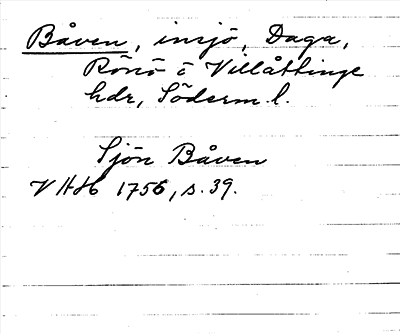 Båven, insjö, Daga,
Rönö o Villåttinge
hdr, Söderm. l.
Sjön Båven
VHAH 1756, s. 39.